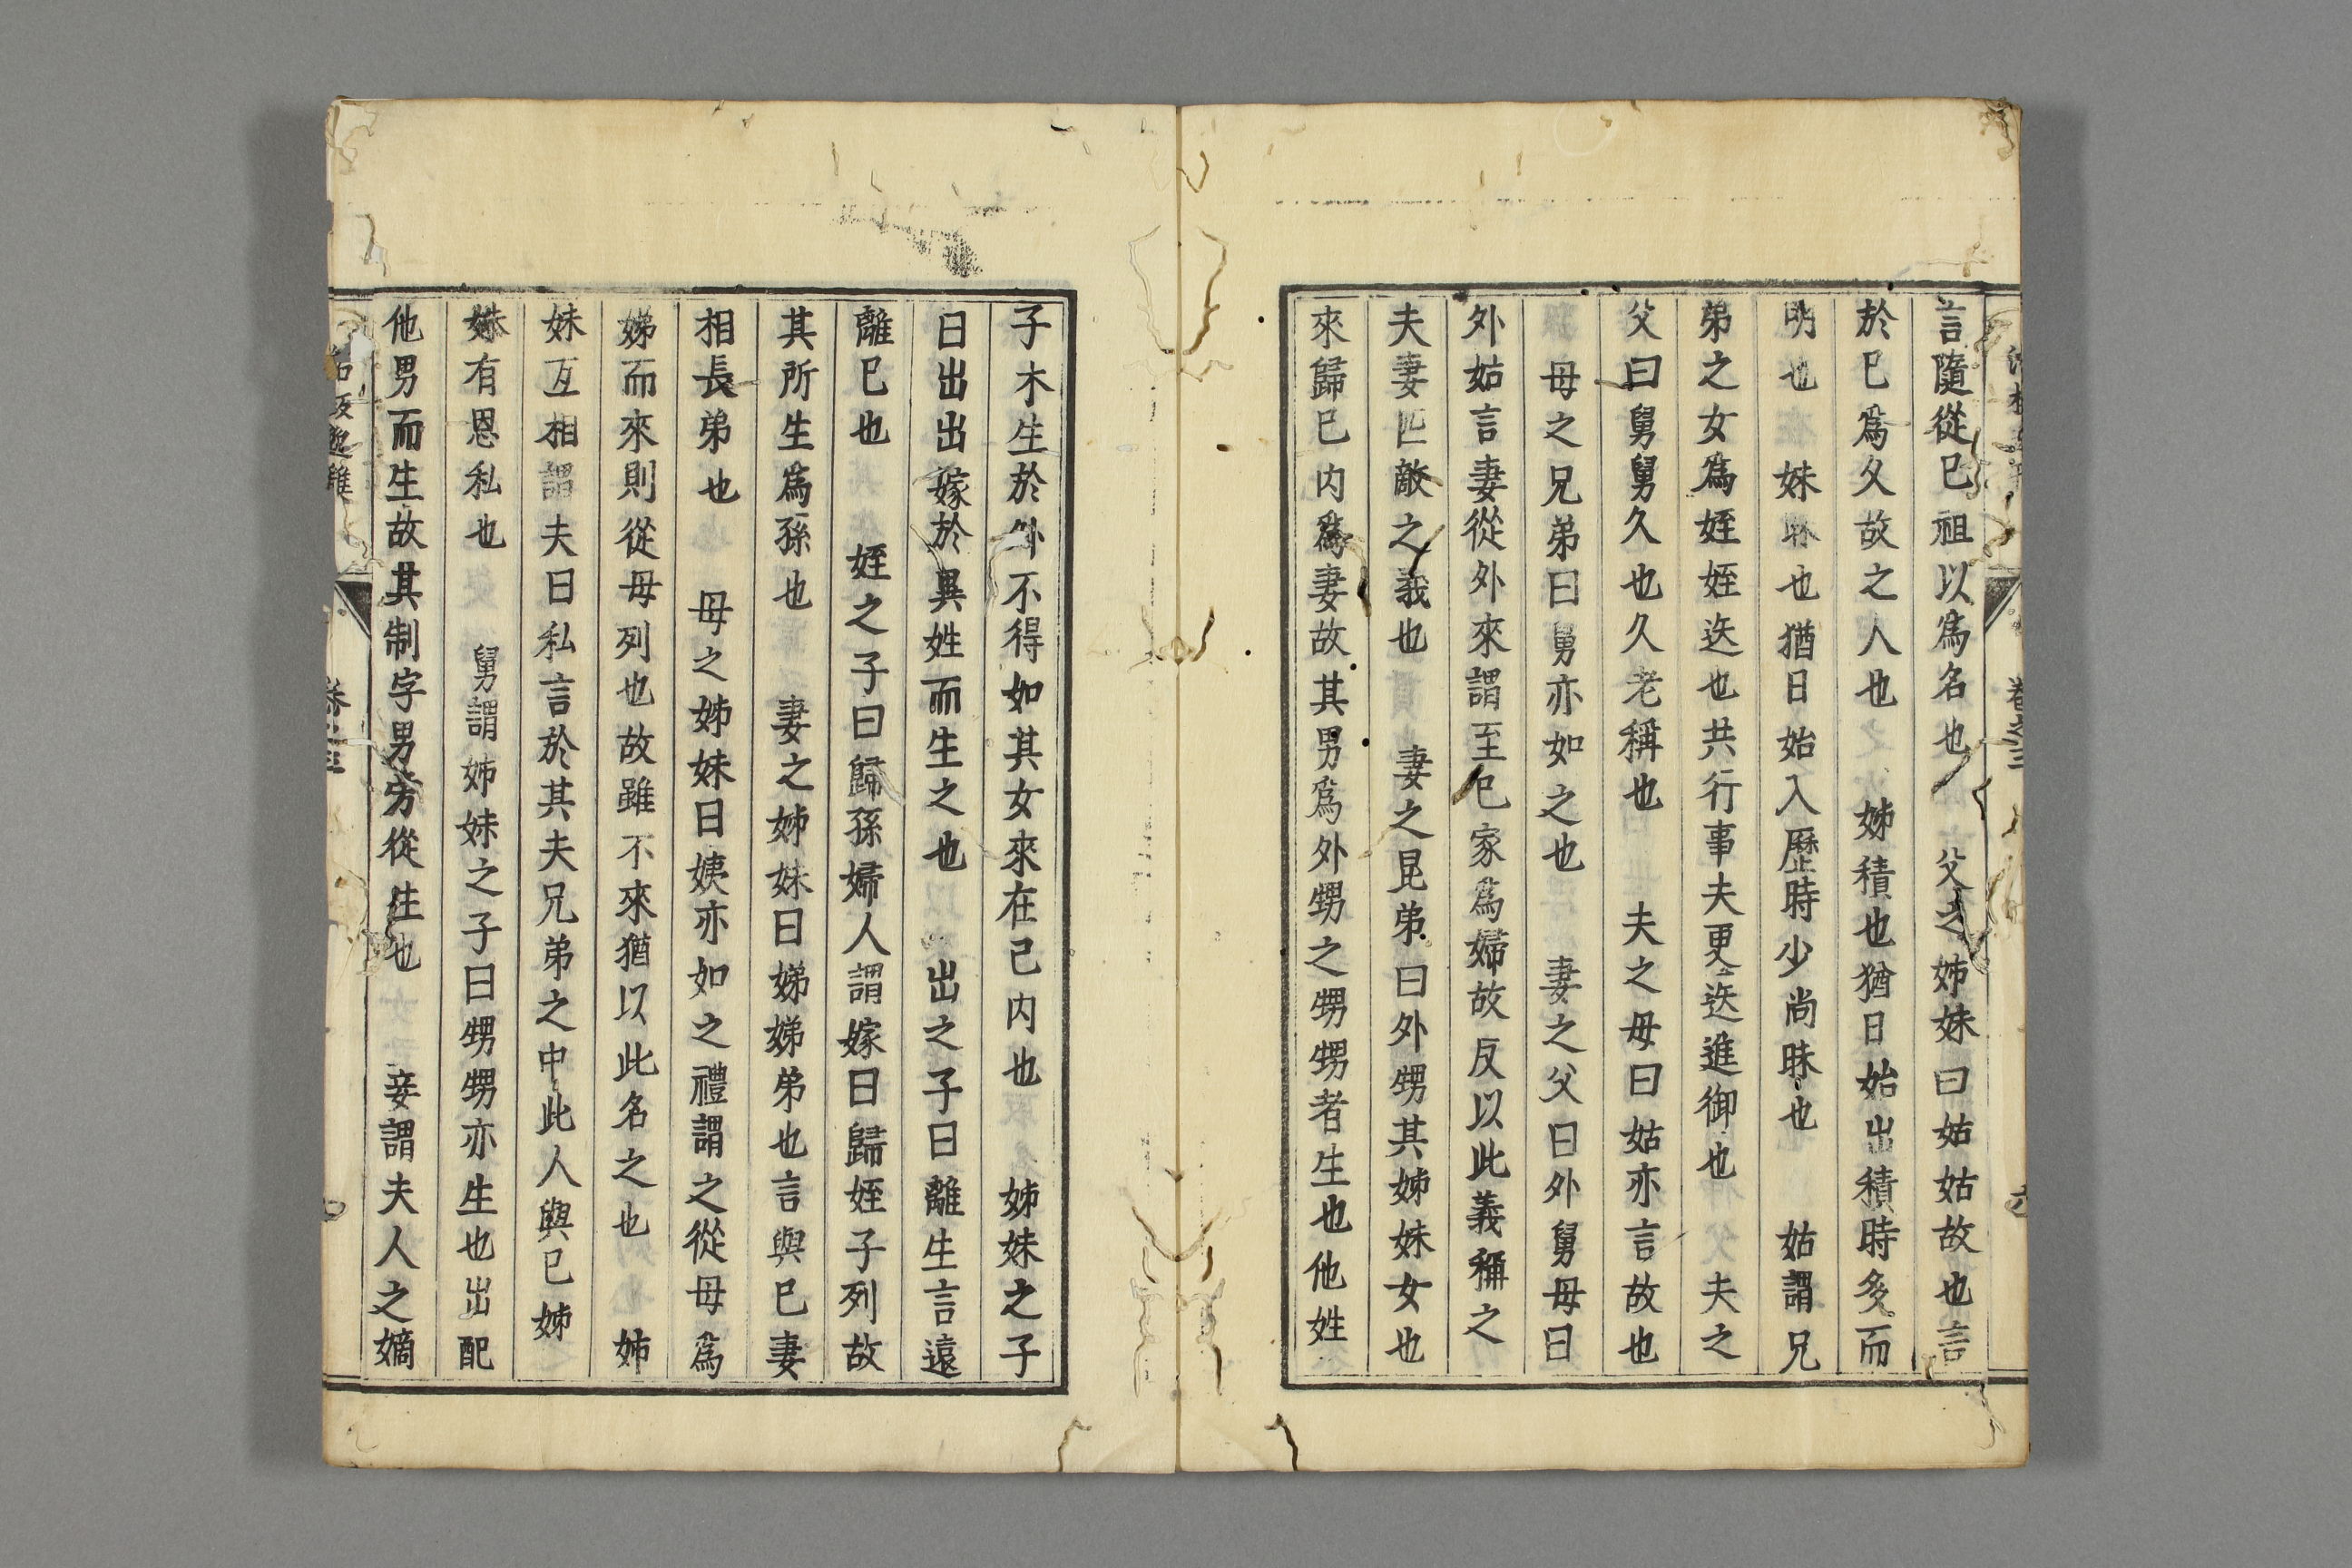 言隨從已祖以爲名也 父之姊妹曰姑姑故也言
於已爲久故之人也 姊積也猶日始出積時多而
明也 妹昧也猶日始入歷時少尚昧也 姑謂兄
弟之女爲姪姪迭也共行事夫更迭進御也 夫之
父曰舅舅久也久老稱也 夫之母曰姑亦言故也
母之兄弟曰舅亦如之也 妻之父曰外舅母曰
外姑言妻從外來謂至已家爲婦故反以此義稱之
夫妻匹敵之義也 妻之昆弟曰外甥其姊妹女也
來歸已内爲妻故其男爲外甥之甥甥者生也他姓
子木生於外不得如其女來在已内也 姊妹之子
曰出出嫁於異姓而生之也 出之子曰離生言遠
離已也 姪之子曰歸孫婦人謂嫁曰歸姪子列故
其所生爲孫也 妻之姊妹曰娣娣弟也言與已妻
相長弟也 母之姊妹曰姨亦如之禮謂之從母爲
娣而來則從母列也故雖不來猶以此名之也 姊
妹互相謂夫曰私言於其夫兄弟之中此人與已姊
妹有恩私也 舅謂姊妹之子曰甥甥亦生也出配
他男而生故其制字男旁從生也 妾謂夫人之嫡